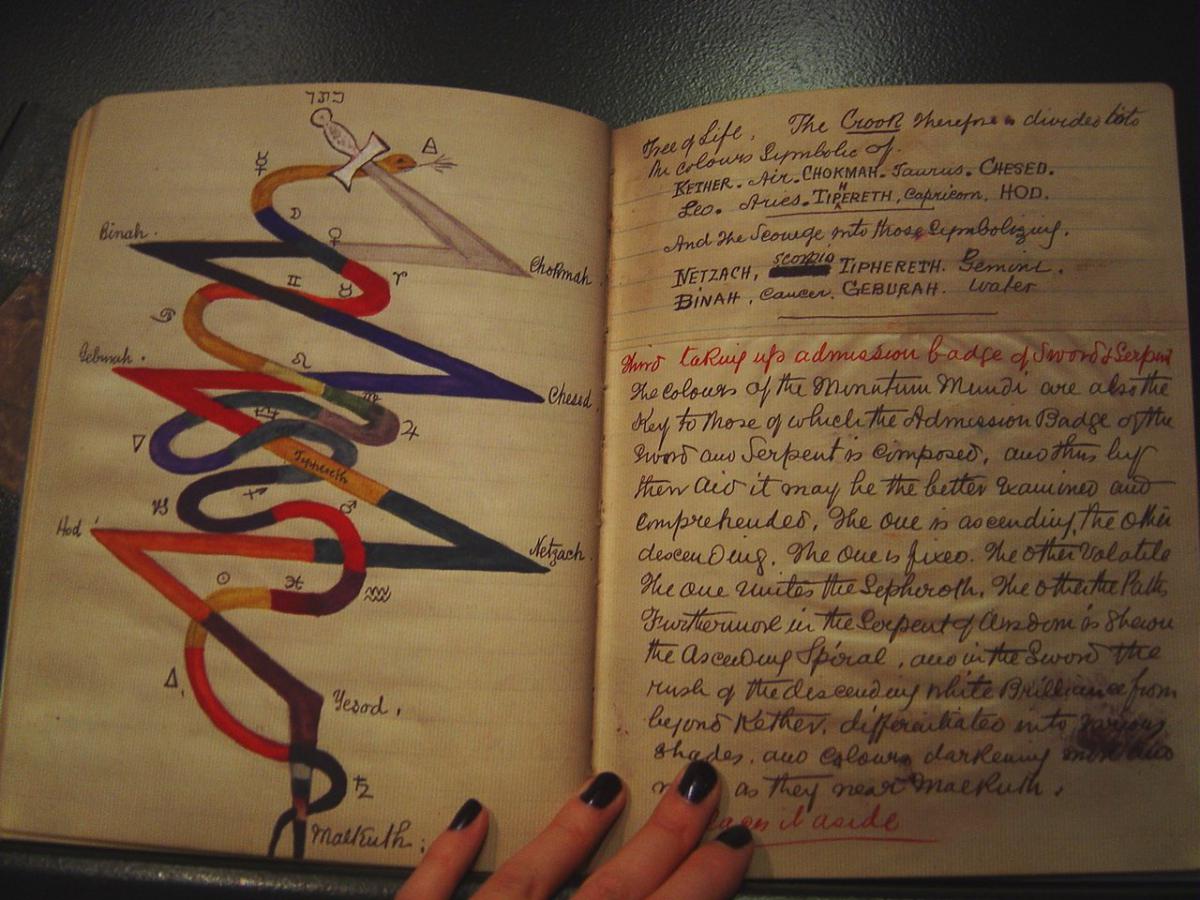 כתר
🜁
☿
☽
♀
Binah.
Chokmah.
♈
♊ ♉
♋
Geburah.
♌
♍
Chesed.
♃
▽
Tiphereth
♐
♑
♂
Hod
Netzach.
☉ ♓
♒
△
Yesod,
♄
Malkuth;
Tree of Life. The Crook therefore is divided into
the colours Symbolic of.
KETHER. Air. CHOKMAH. Taurus. CHESED.
Leo. Aries. TIPHERETH, Capricorn, HOD.
And the Scourge into those Symbolizing.
NETZACH, scorpio TIPHERETH. Gemini.
BINAH, Cancer. GEBURAH. Water
Third taking up admission badge of Sword & Serpent
The colours of the Minutum Mundi are also the
Key to those of which the Admission Badge of the
Sword and Serpent is composed, and thus by
their aid it may be the better examined and
comprehended. The one is ascending, the other
descending. The one is fixed. The other Volatile
The one unites the Sephiroth. The other the Paths
Furthermore in the Serpent of Wisdom is Shewn
the Ascending Spiral, and in the Sword the
rush of the descending White Brilliance from
beyond Kether, differentiated into various
Shades, and colours darkening more and
as they near Malkuth.
it aside